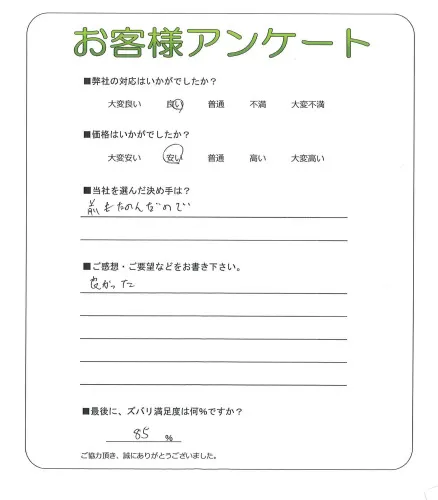 お客様アンケート
■弊社の対応はいかがでしたか？
大変良い 良い 普通 不満 大変不満
■価格はいかがでしたか？
大変安い 安い 普通 高い 大変高い
■当社を選んだ決め手は？
前もたのんだので
■ご感想・ご要望などをお書き下さい。
良かった
■最後に、ズバリ満足度は何%ですか？
85 %
ご協力頂き、誠にありがとうございました。